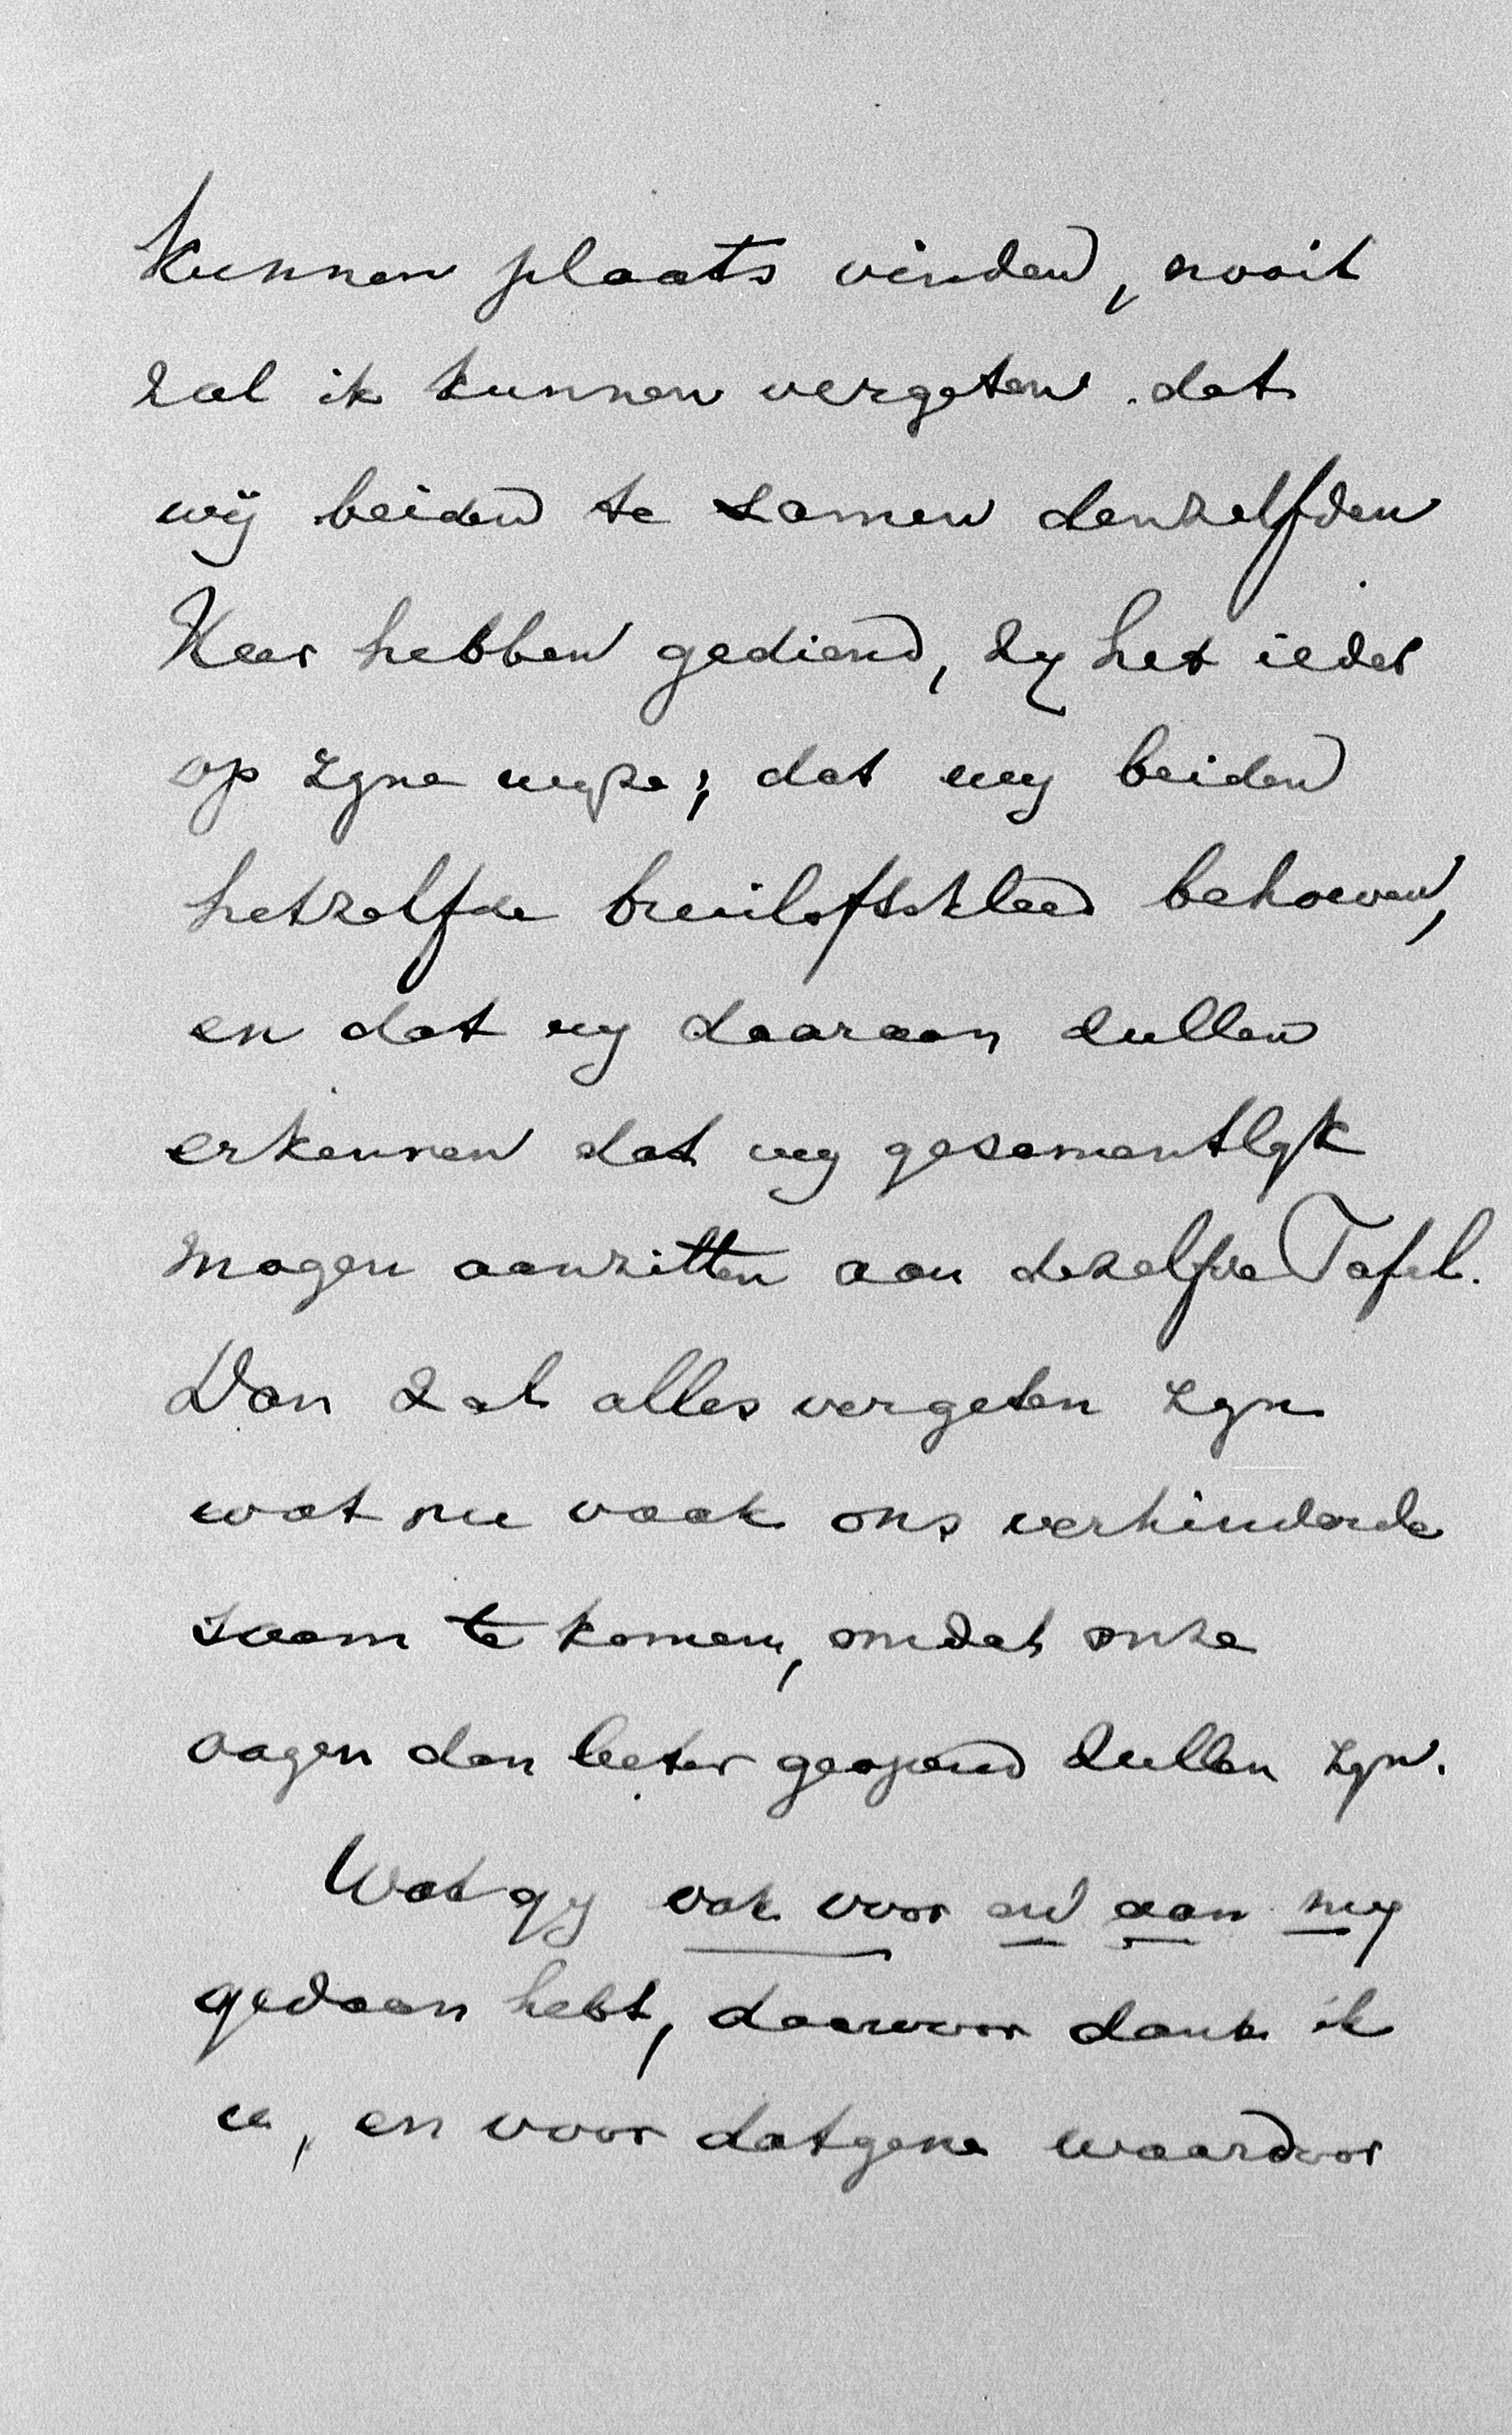 kunnen plaats vinden, nooit
zal ik kunnen vergeten dat
wij beiden te zamen denzelfden
Heer hebben gediend, zij het ieder
op zijne wijze; dat wij beiden
hetzelfde bruiloftskleed behoeven,
en dat wij daaraan zullen
erkennen dat wij gesamentlijk
mogen aanzitten aan dezelfde Tafel.
Dan zal alles vergeten zijn
wat nu vaak ons verhinderde
zaam te komen, omdat onze
oogen dan beter geopend zullen zijn.
Wat gij ook voor en aan mij
gedaan hebt, daarvoor dank ik
u, en voor datgene waardoor